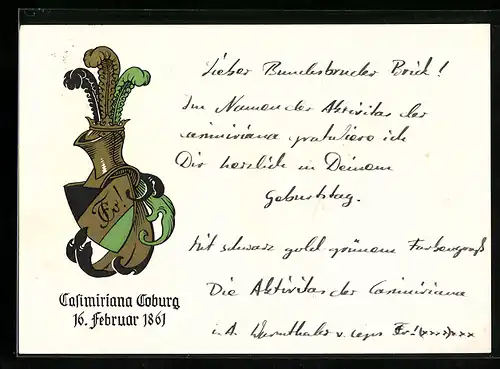 Lieber Bundesbruder Brick!
Im Namen der Aktivitas der
Casimiriana gratuliere ich
Dir herzlich in Deinem
Geburtstag.
Mit schwarz gold grünem Farbengruß
Die Aktivitas der Casimiriana
i. A.
Fr!
Casimiriana Coburg
16. Februar 1861